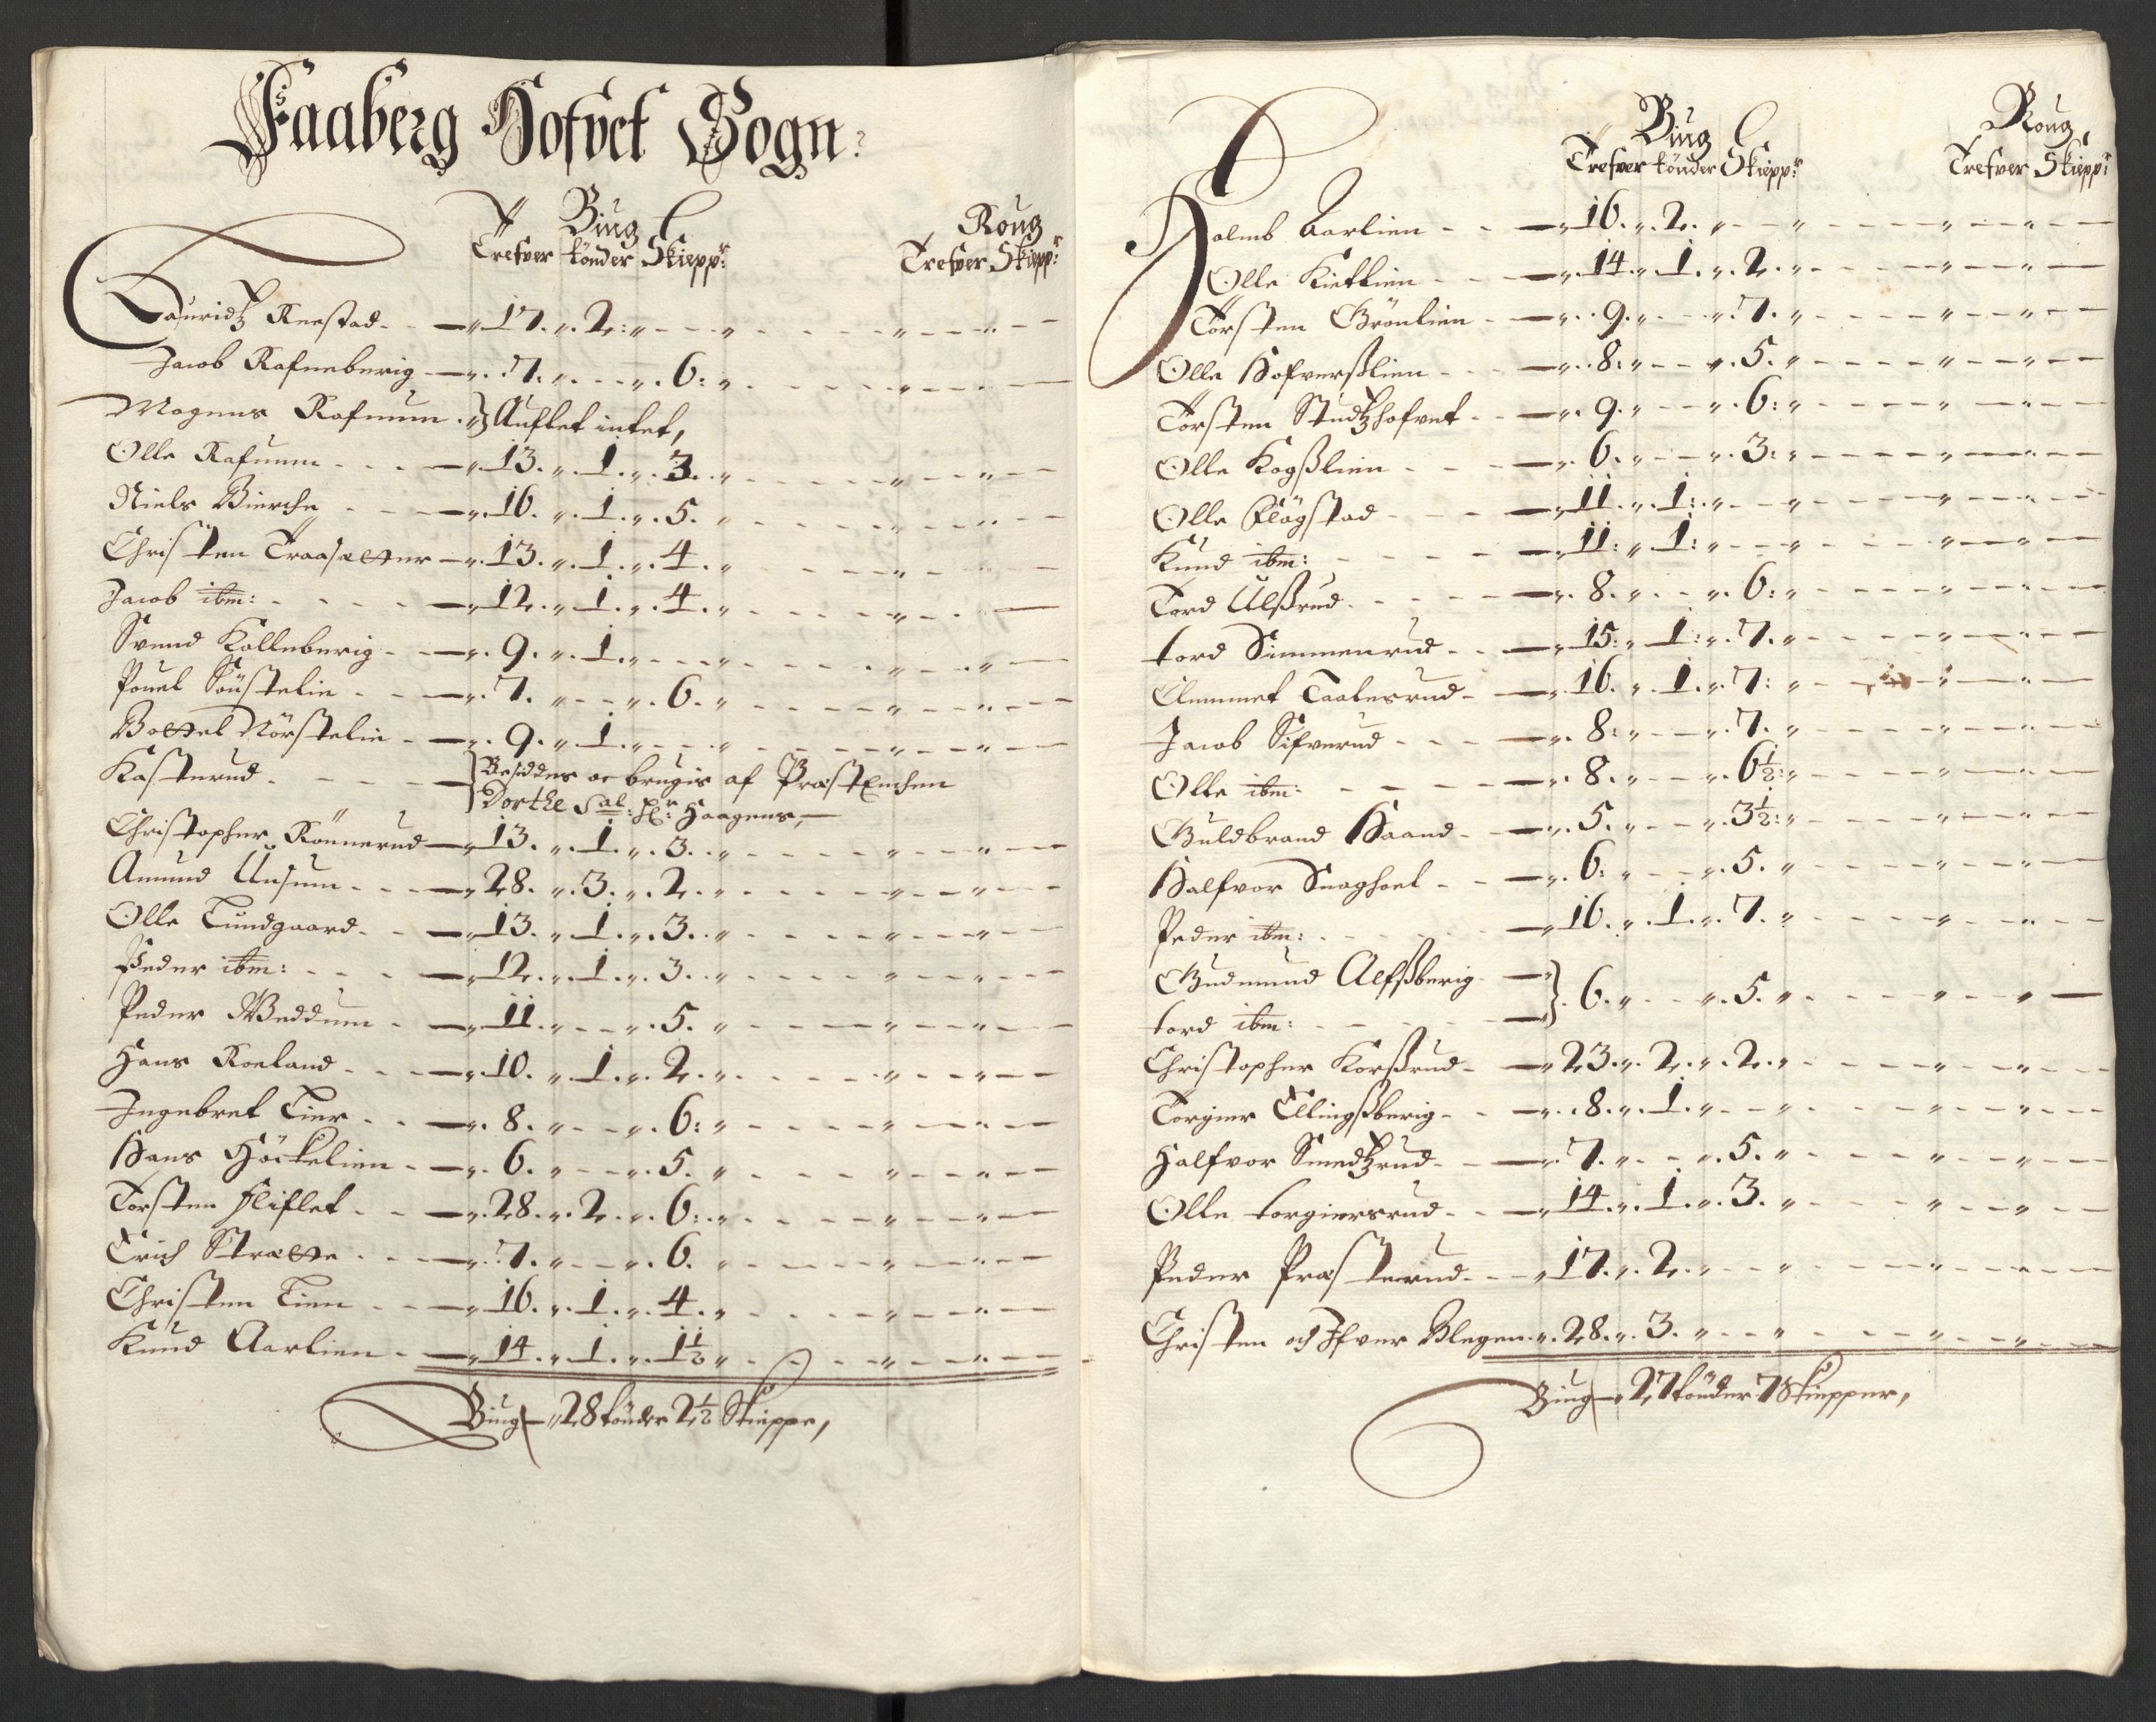 Faaberg Hofvet Sogn:
Biug Roug
Trefver tönder Skiepp: Trefver Skiepp:
Lauridtz Reestad - - 17. 2:
Jacob Rafneberig - 7. 6:
Magnus Rafnum } Auflet intet,
Olle Rafnum - 13. 1. 3.
Niels Bierche - 16. 1. 5.
Christen Traasetter - 13. 1. 4.
Jacob ibm: - 12. 1. 4.
Svend Kolleberig - 9. 1.
Pouel Söustelie - 7. 6.
Bottel Nörstelie - 9. 1.
Kasterud - } Besiddes oc brugis af PræstEnchen
Dorthe Sal: Hr: Haagens,
Christopher Rönnerud - 13. 1. 3.
Amund Uusum - 28. 3. 2.
Olle Lundgaard - 13. 1. 3.
Peder ibm: - 12. 1. 3.
Peder Weddum - 11. 5.
Hans Roeland - 10. 1. 2.
Ingebret Lier - 8. 6:
Hans Höckelien - 6. 5.
Torsten Fliflet - 28. 2. 6:
Erich Strætte - 7. 6.
Christen Lien - 16. 1. 4.
Knud Aarlien - 14. 1. 1½
Biug - 28 tönder 2½ Skieppe,
Biug Roug,
Trefver tönder Skiepp: Trefver Skiepp:
Holmb Aarlien - 16. 2.
Olle Kietlien - 14. 1. 2.
Torsten Grönlien - 9. 7.
Olle Hofverslien - 8. 5.
Torsten Studtzhofvet - 9. 6:
Olle Kogßlien - 6. 3:
Olle Flögstad - 11. 1:
Knud ibm: - 11: 1:
Tord Ulßrud - 8. 6:
tord Simmenrud - 15: 1: 7.
Clemmet Taalesrud - 16. 1. 7:
Jacob Sifverud - 8: 7.
Olle ibm: - 8. 6½:
Guldbrand Haave - 5. 3½:
Halfvor Snaghoel - 6: 5.
Peder ibm: - 16. 1. 7.
Gudmund Alfßberig -
tord ibm: - } 6. 5.
Christopher Korßrud - 23. 2. 2.
Torgier Ellingßberig - 8. 1.
Halfvor Smedtzrud - 7. 5.
Olle torgiersrud - 14. 1. 3.
Peder Præsterud - 17. 2.
Christen och Ifver Blegen - 28. 3.
Biug - 27 tönder 7 Skiepper,